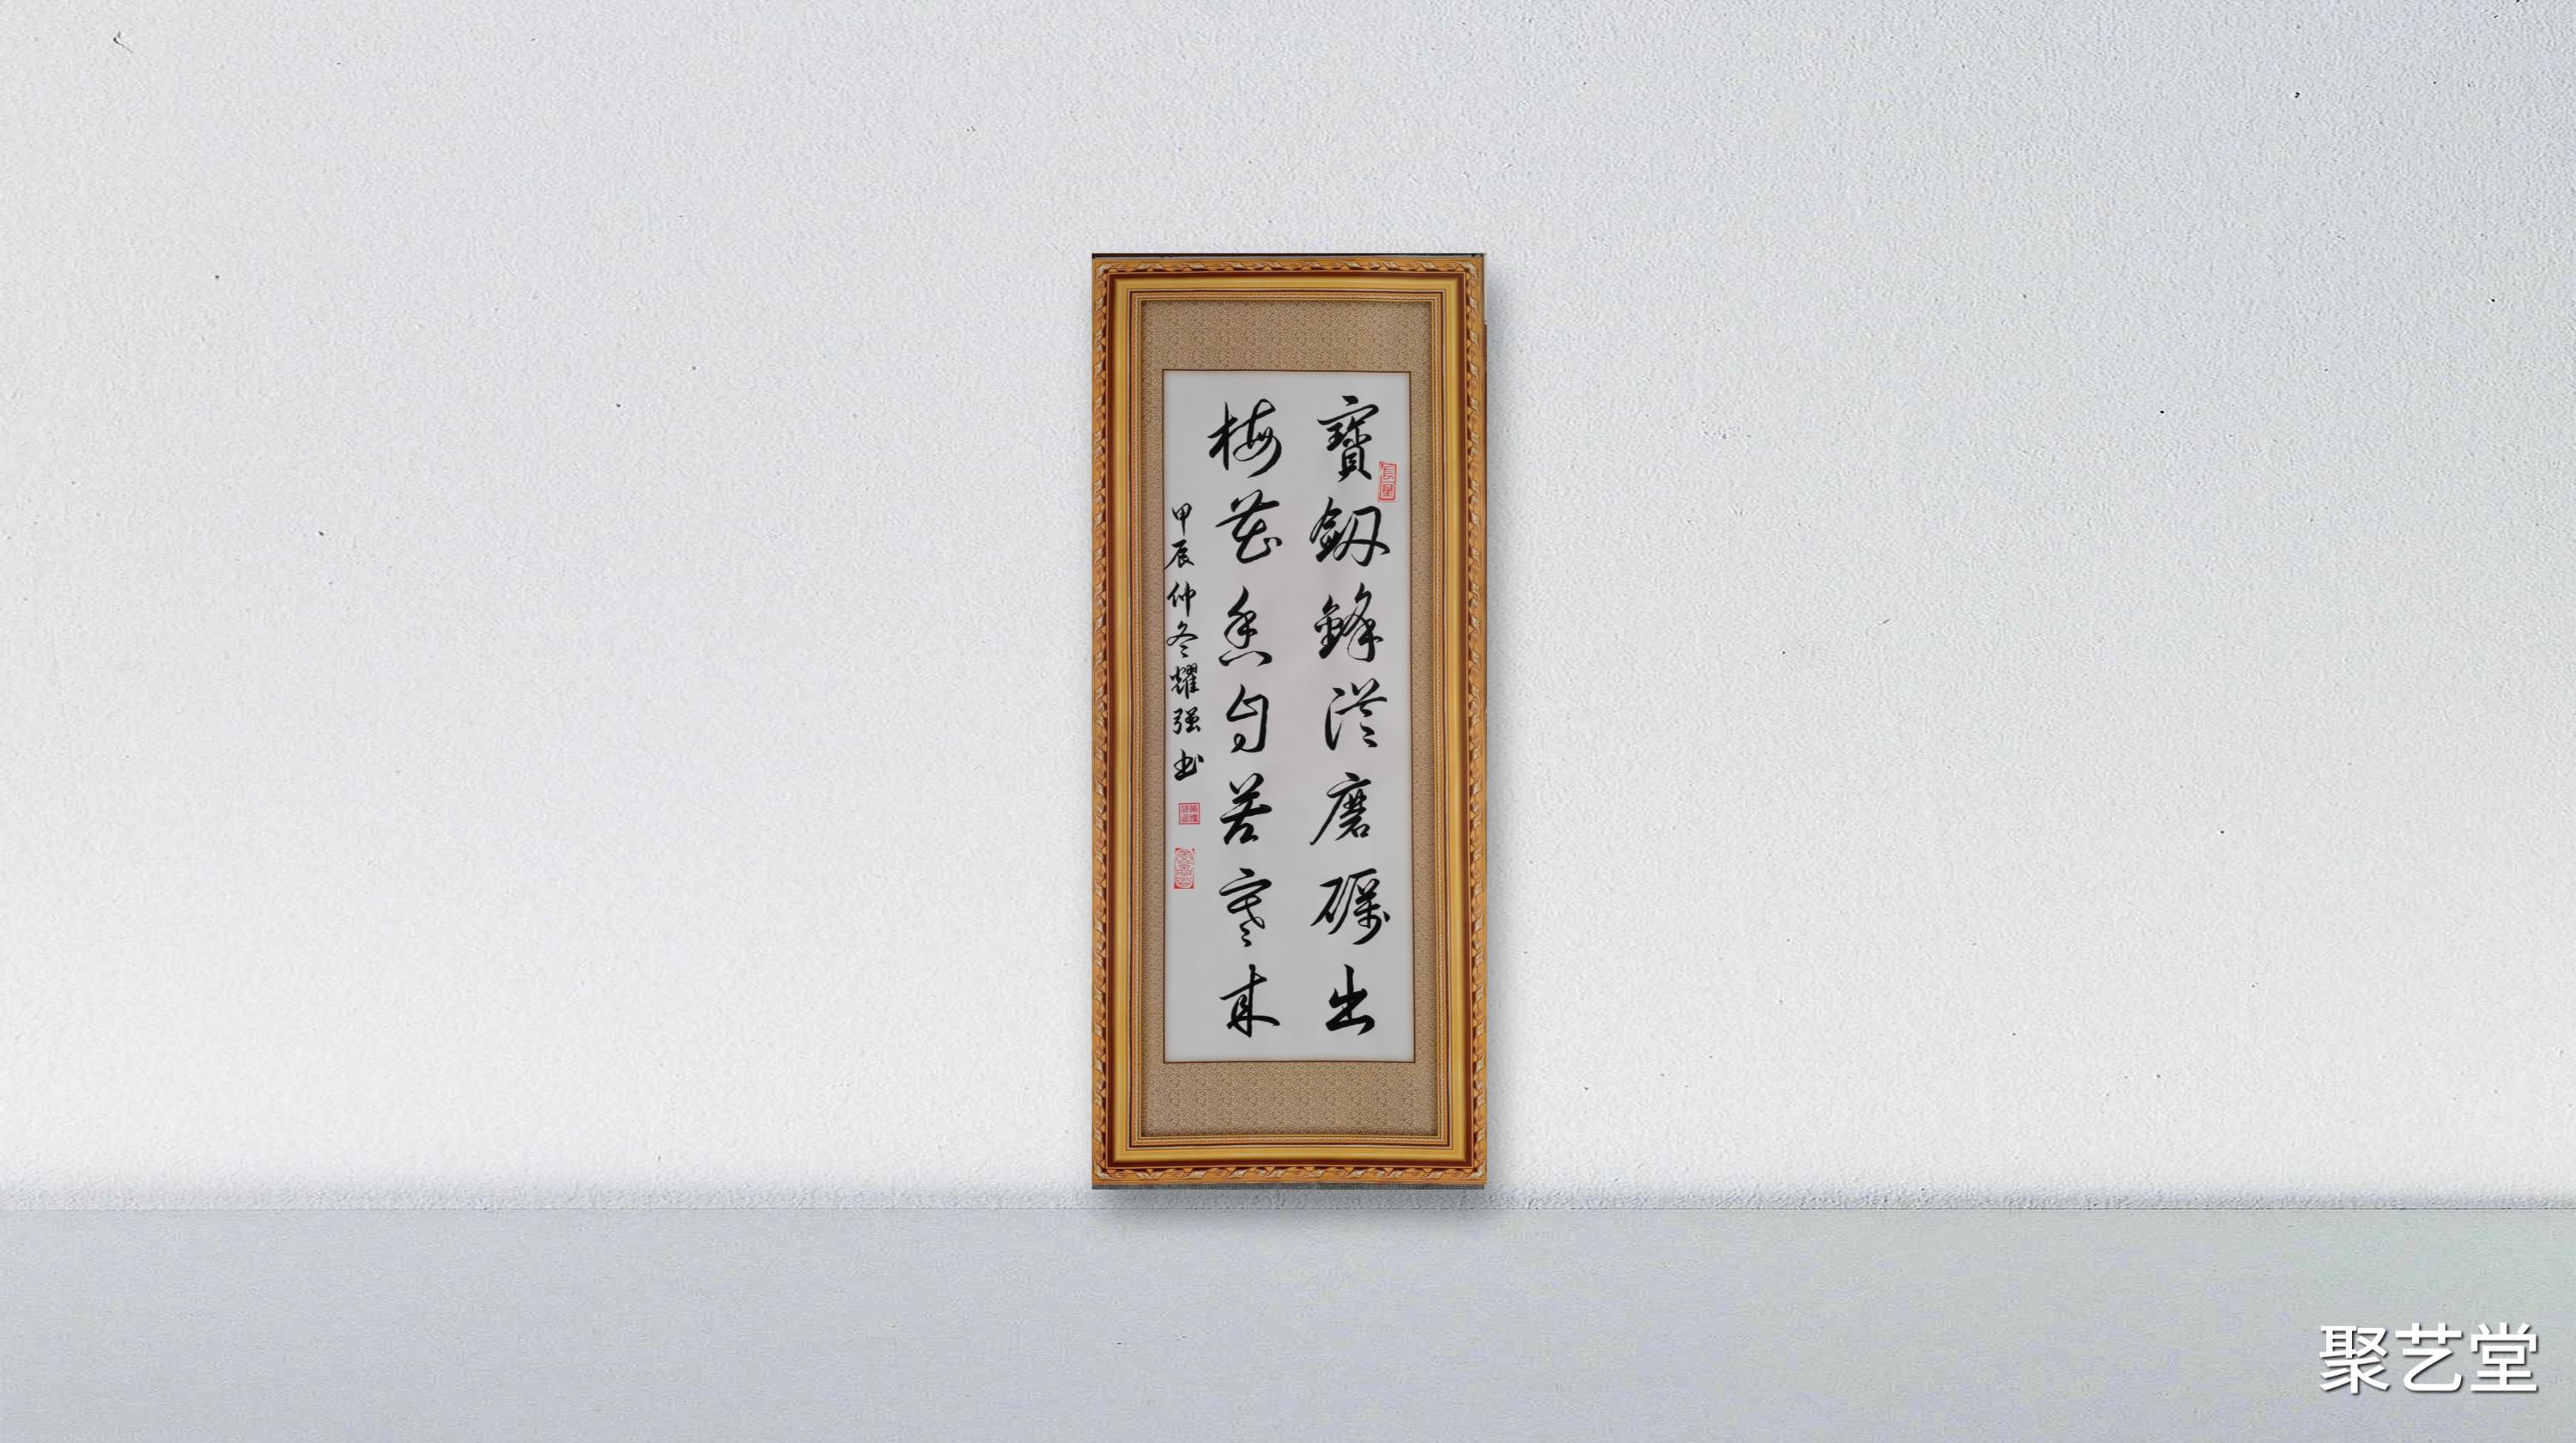 寶劔鋒從磨礪出
梅花香自苦寒來
甲辰仲冬耀强书
聚艺堂